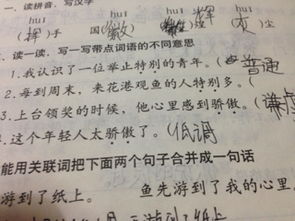 一、读拼音，写汉字
huī huī huī huī
(挥)手 国(徽) (辉) (灰)尘
、读一读，写一写带点词语的不同意思
1.我认识了一位举止特别的青年。(普通
2.每到周末，来花港观鱼的人特别多。(
3.上台领奖的时候，他心里感到骄傲。(谦虚
4.这个年轻人太骄傲了。(低调
能用关联词把下面两个句子合并成一句话
游到了纸上。 鱼先游到了我的心里